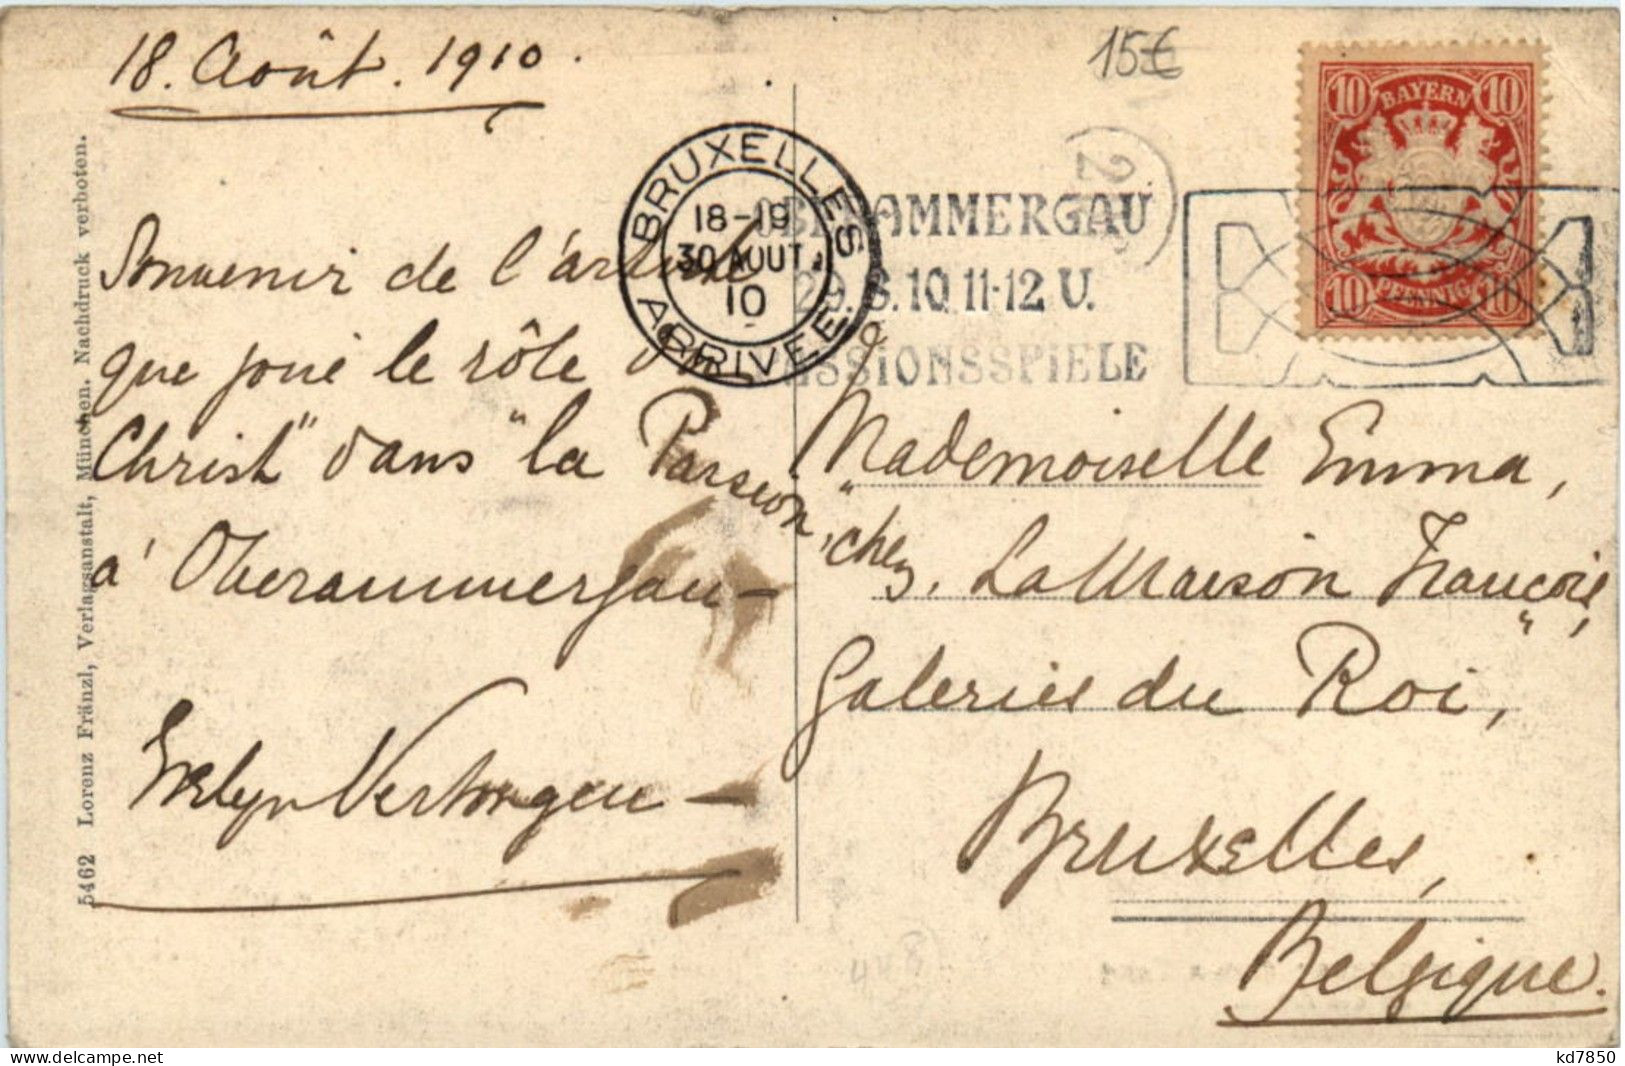 18. Août. 1910.
15€
BAYERN
10 10
10 PFENNIG 10
BRUXELLES
18-19
30 AOUT
10
ARRIVEE
OBERAMMERGAU
29.8.10 11-12 U.
PASSIONSSPIELE
Souvenir de l'artiste
que joue le rôle du
Christ" dans "la Passion,"
à Oberammergau—
Evelyn Vertongen—
Mademoiselle Emma,
chez, "La Maison Française",
Galeries du Roi,
Bruxelles,
Belgique.
5462 Lorenz Fränzl, Verlagsanstalt, München. Nachdruck verboten.
kd7850